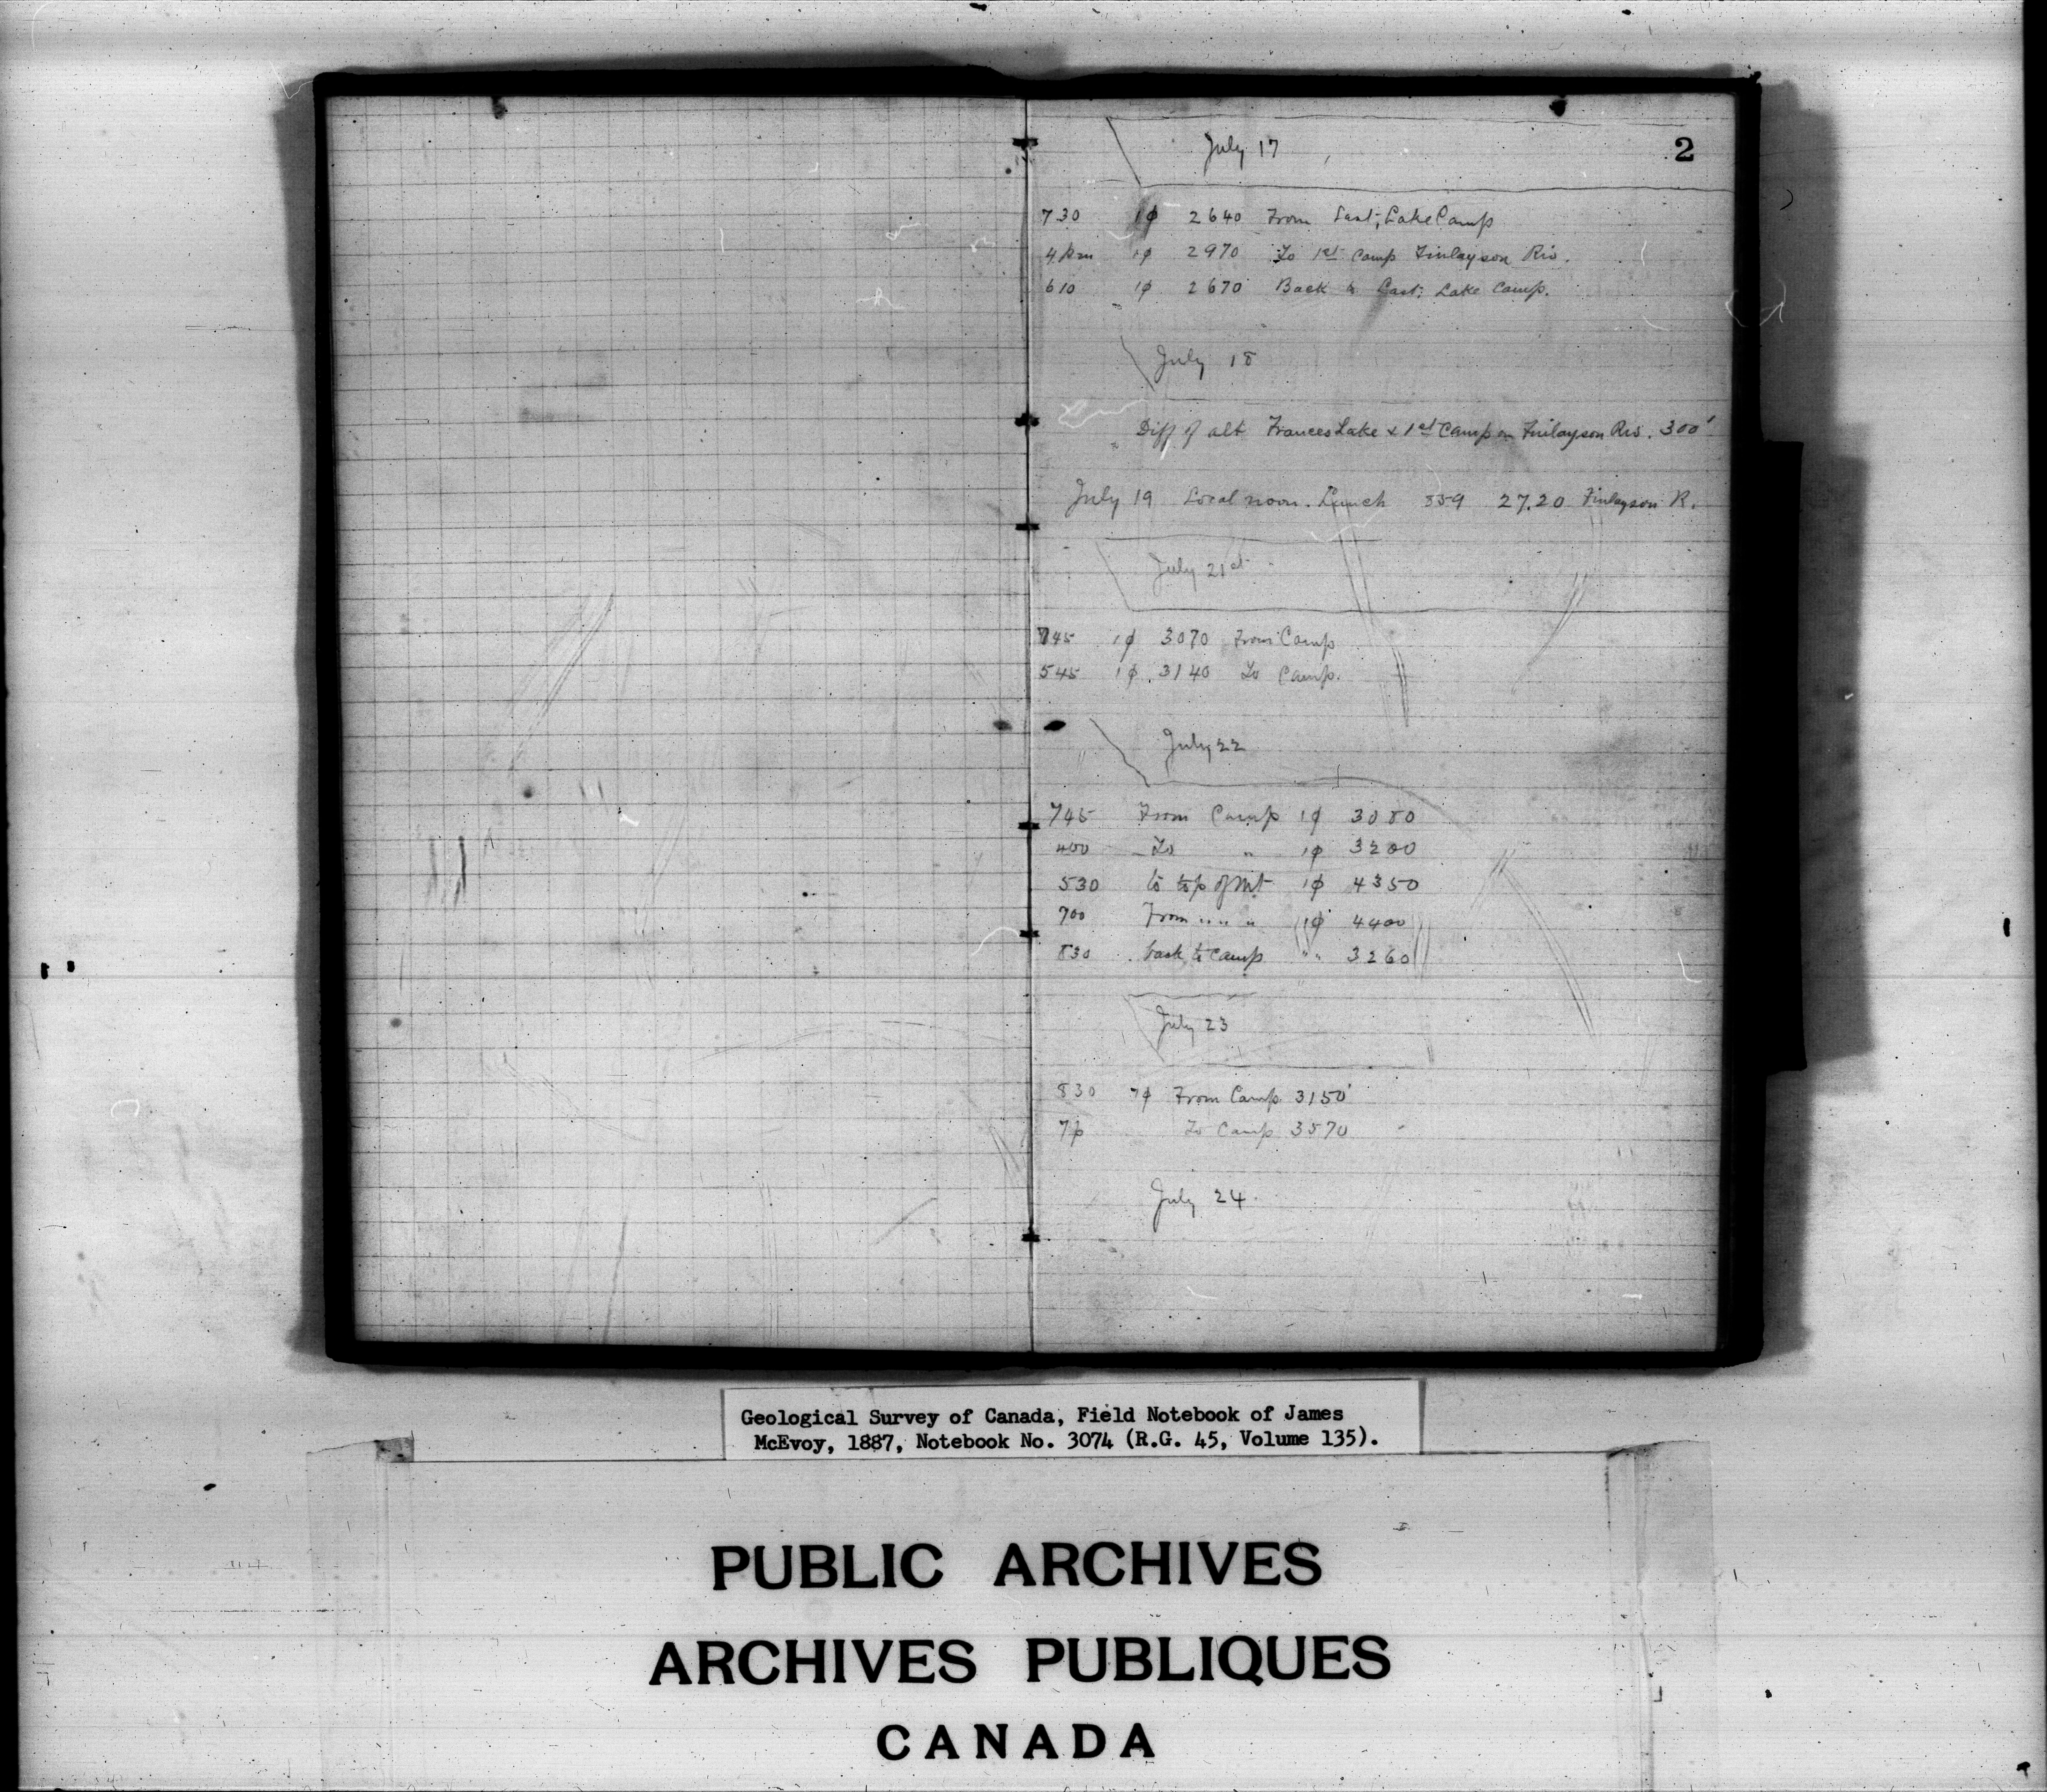 July 17
2
730 1φ 2640 From Last, Lake Camp
4 Pm 1φ 2970 To 1st Camp Finlayson Riv.
610 1φ 2670 Back to Last: Lake Camp.
July 18
Diff of alt Frances Lake & 1st Camp on Finlayson Riv. 300'
July 19 Local noon. Lunch 859 27.20 Finlayson R.
July 21st
745 1φ 3070 From Camp
545 1φ 3140 To Camp.
July 22
745 From Camp 1φ 3080
400 To " 1φ 3200
530 to top of Mt 1φ 4350
700 From " " " 1φ 4400
830 back to camp " " 3260
July 23
830 7φ From Camp 3150'
7p To Camp 3570
July 24
Geological Survey of Canada, Field Notebook of James
McEvoy, 1887, Notebook No. 3074 (R.G. 45, Volume 135).
PUBLIC ARCHIVES
ARCHIVES PUBLIQUES
CANADA